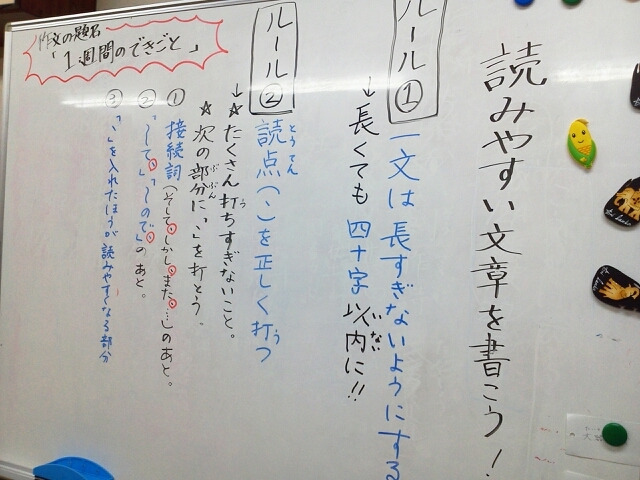 読みやすい文章を書こう!
ルール①
一文は長すぎないようにする
→長くても四十字以内に!!
いない
ルール②
読点(、)を正しく打つ
とうてん
う
→☆たくさん打ちすぎないこと。
う
☆次の部分に「、」を打とう。
ぶぶん
①接続詞(そして、しかし、また、…)のあと。
②「〜して、」「〜ので、」のあと。
③「、」を入れたほうが読みやすくなる部分
作文の題名
「1週間のできごと」